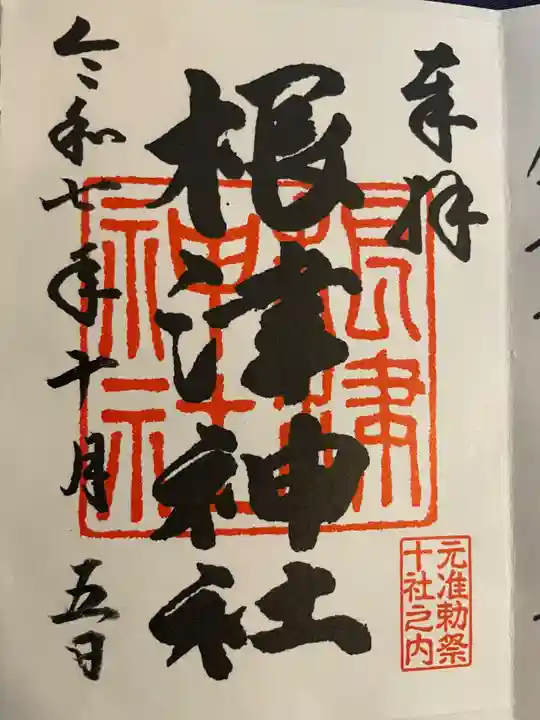 奉拝
根津神社
根津神社
元准勅祭
十社之内
令和七年十月五日